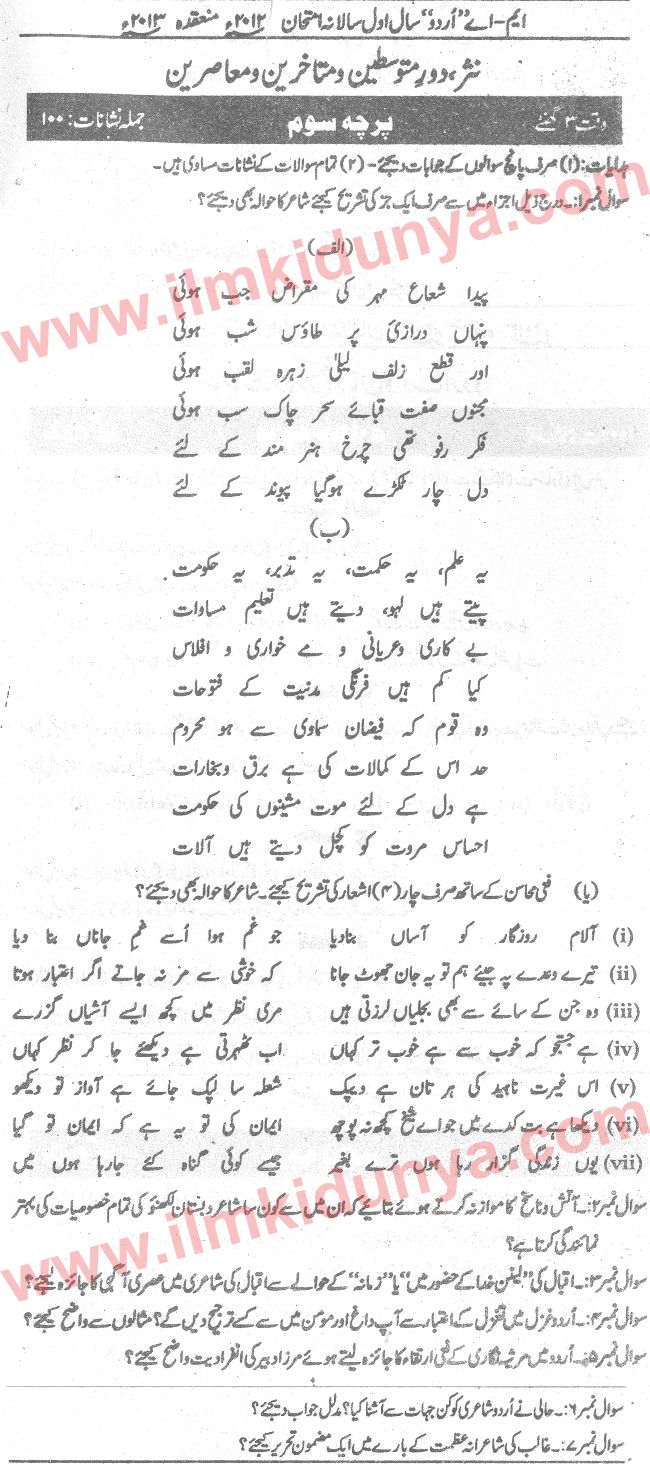 ایم-اے "اُردو" سال اول سالانہ امتحان ۲۰۱۲ء منعقدہ ۲۰۱۳ء
نثر، دورِ متوسطین و متاخرین و معاصرین
وقت ۳ گھنٹے پرچہ سوم جملہ نشانات: ۱۰۰
ہدایات: (۱) صرف پانچ سوالوں کے جوابات دیجئے- (۲) تمام سوالات کے نشانات مساوی ہیں-
سوال نمبر۱:۔ درج ذیل اجزاء میں سے صرف ایک جز کی تشریح کیجئے شاعر کا حوالہ بھی دیجئے؟
(الف)
پیدا شعاع مہر کی مقراض جب ہوئی
پنہاں درازئ پر طاؤس شب ہوئی
اور قطع زلف لیلیٰ زہرہ لقب ہوئی
مجنوں صفت قبائے سحر چاک سب ہوئی
فکر رفو تھی چرخ ہنر مند کے لئے
دل چار ٹکڑے ہوگیا پیوند کے لئے
(ب)
یہ علم، یہ حکمت، یہ تدبر، یہ حکومت
پیتے ہیں لہو، دیتے ہیں تعلیم مساوات
بے کاری و عریانی و مے خواری و افلاس
کیا کم ہیں فرنگی مدنیت کے فتوحات
وہ قوم کہ فیضان سماوی سے ہو محروم
حد اس کے کمالات کی ہے برق و بخارات
ہے دل کے لئے موت مشینوں کی حکومت
احساس مروت کو کچل دیتے ہیں آلات
(یا) فنی محاسن کے ساتھ صرف چار (۴) اشعار کی تشریح کیجئے۔ شاعر کا حوالہ بھی دیجئے؟
(i) آلام روزگار کو آساں بنادیا جو غم ہوا اُسے غمِ جاناں بنا دیا
(ii) تیرے وعدے پہ جیئے ہم تو یہ جان جھوٹ جانا کہ خوشی سے مر نہ جاتے اگر اعتبار ہوتا
(iii) وہ جن کے سائے سے بھی بجلیاں لرزتی ہیں مری نظر میں کچھ ایسے آشیاں گزرے
(iv) ہے جستجو کہ خوب سے ہے خوب تر کہاں اب ٹھہرتی ہے دیکھئے جا کر نظر کہاں
(v) اس غیرت ناہید کی ہر تان ہے دیپک شعلہ سا لپک جائے ہے آواز تو دیکھو
(vi) دیکھا ہے بت کدے میں جو اے شیخ کچھ نہ پوچھ ایمان کی تو یہ ہے کہ ایمان تو گیا
(vii) یوں زندگی گزار رہا ہوں ترے بغیر جیسے کوئی گناہ کئے جارہا ہوں میں
سوال نمبر۲:۔ آتش و ناسخ کا موازنہ کرتے ہوئے بتائیے کہ ان میں سے کون سا شاعر دبستان لکھنؤ کی تمام خصوصیات کی بہتر
نمائندگی کرتا ہے؟
سوال نمبر۳:۔ اقبال کی "لینن خدا کے حضور میں" یا "زمانہ" کے حوالے سے اقبال کی شاعری میں عصری آگہی کا جائزہ لیجئے؟
سوال نمبر۴:۔ اُردو غزل میں تغزل کے اعتبار سے آپ داغ اور مومن میں سے کسے ترجیح دیں گے؟ مثالوں سے واضح کیجئے؟
سوال نمبر۵:۔ اُردو میں مرثیہ نگاری کے فنی ارتقاء کا جائزہ لیتے ہوئے مرزا دبیر کی انفرادیت واضح کیجئے؟
سوال نمبر۶:۔ حالی نے اُردو شاعری کو کن جہات سے آشنا کیا؟ مدلل جواب دیجئے؟
سوال نمبر۷:۔ غالب کی شاعرانہ عظمت کے بارے میں ایک مضمون تحریر کیجئے؟
www.ilmkidunya.com
www.ilmkidunya.com